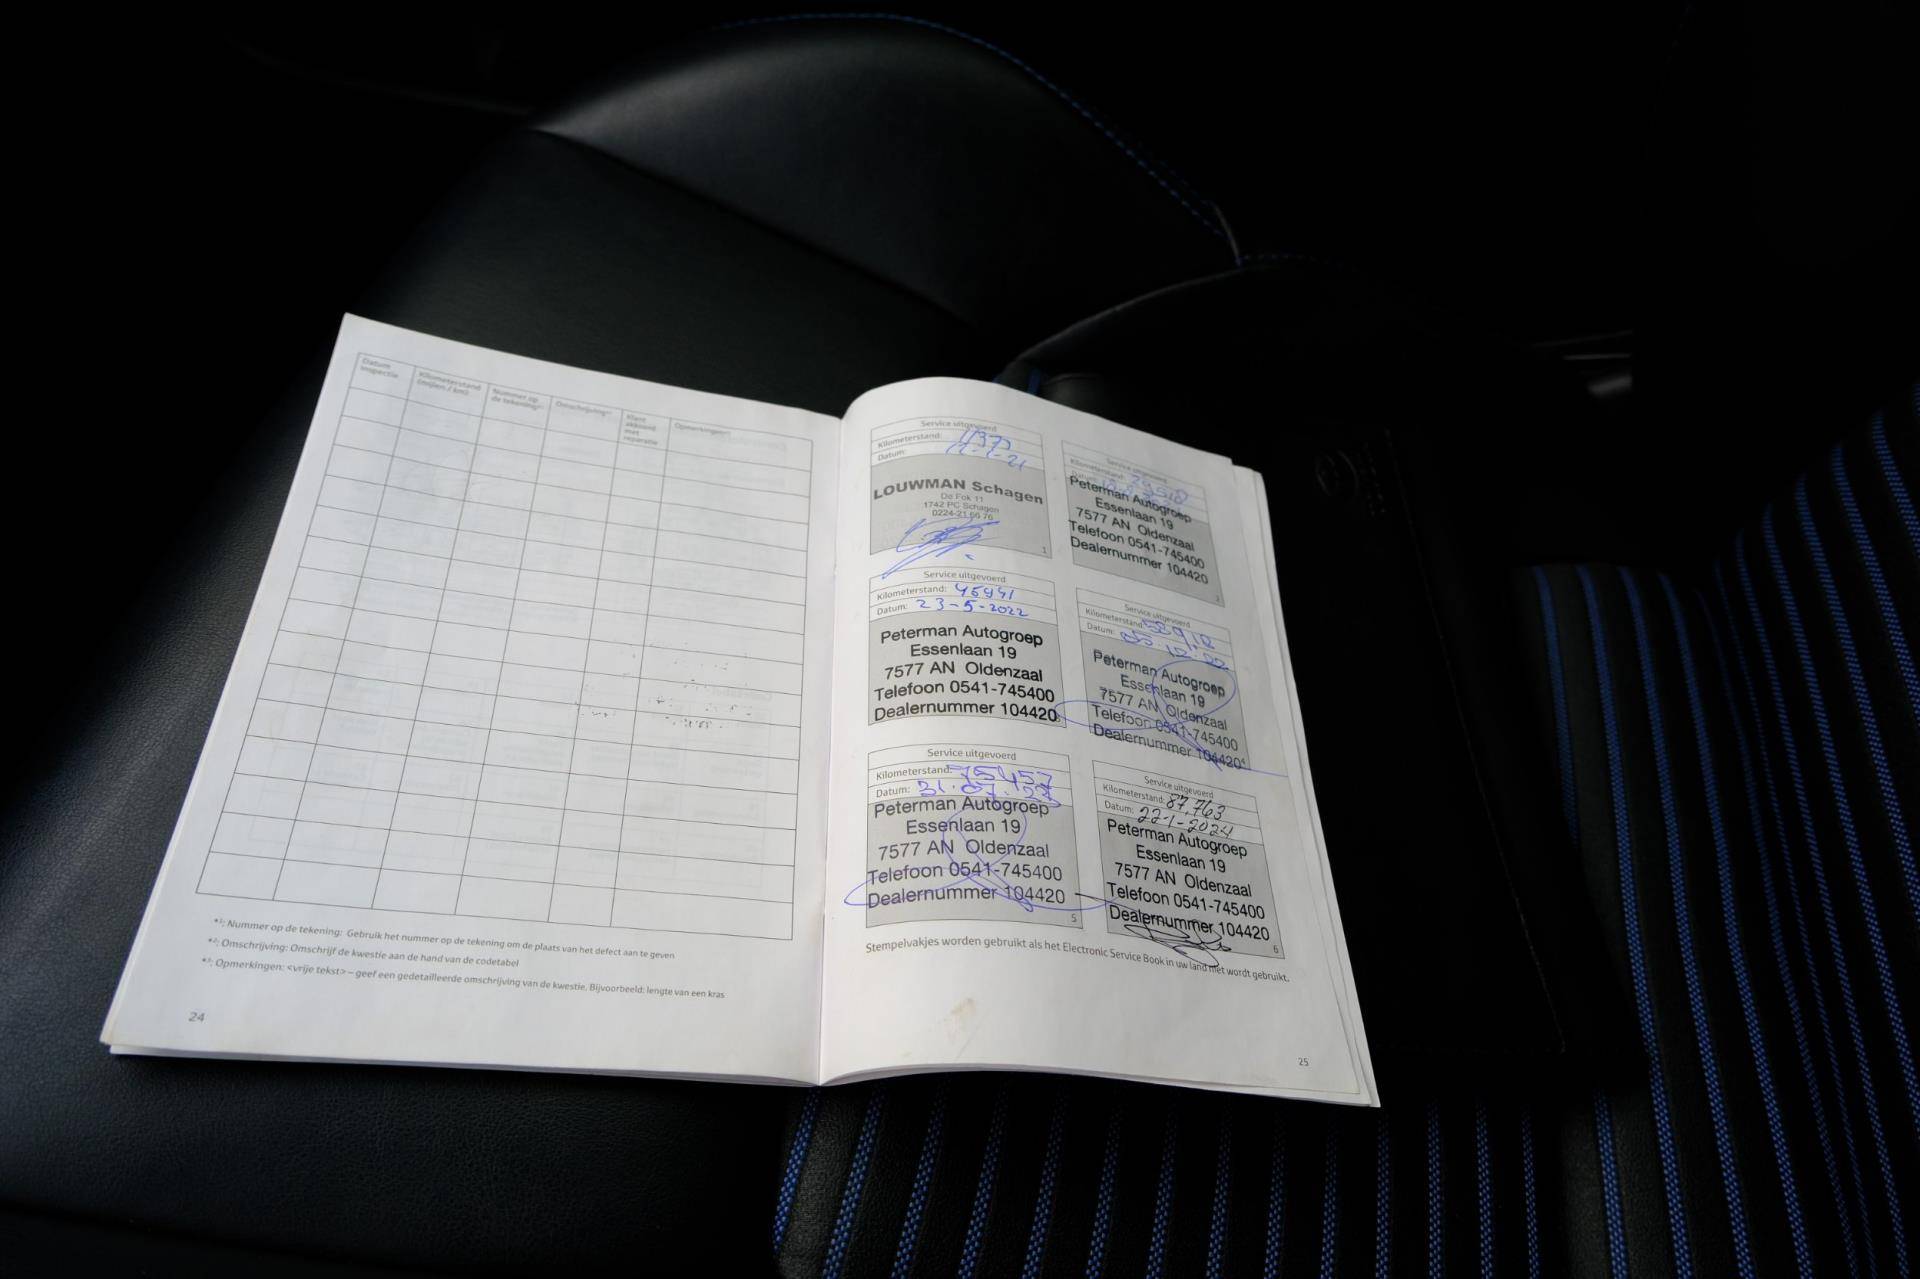 Datum
inspectie
Kilometerstand
(mijlen / km)
Nummer op
de tekening*¹
Omschrijving*²
Klant
akkoord
met
reparatie
Opmerkingen*³
*¹: Nummer op de tekening: Gebruik het nummer op de tekening om de plaats van het defect aan te geven
*²: Omschrijving: Omschrijf de kwestie aan de hand van de codetabel
*³: Opmerkingen: <vrije tekst> – geef een gedetailleerde omschrijving van de kwestie. Bijvoorbeeld: lengte van een kras
24
Service uitgevoerd
Kilometerstand:
Datum:
LOUWMAN Schagen
De Fok 11
1742 PC Schagen
0224-21 66 76
1
Service uitgevoerd
Kilometerstand: 29518
Datum:
Peterman Autogroep
Essenlaan 19
7577 AN Oldenzaal
Telefoon 0541-745400
Dealernummer 104420
2
Service uitgevoerd
Kilometerstand: 45941
Datum: 23-5-2022
Peterman Autogroep
Essenlaan 19
7577 AN Oldenzaal
Telefoon 0541-745400
Dealernummer 104420
3
Service uitgevoerd
Kilometerstand: 58912
Datum: 05.12.22
Peterman Autogroep
Essenlaan 19
7577 AN Oldenzaal
Telefoon 0541-745400
Dealernummer 104420
4
Service uitgevoerd
Kilometerstand: 75457
Datum: 31.07.23
Peterman Autogroep
Essenlaan 19
7577 AN Oldenzaal
Telefoon 0541-745400
Dealernummer 104420
5
Service uitgevoerd
Kilometerstand: 87.763
Datum: 22-1-2024
Peterman Autogroep
Essenlaan 19
7577 AN Oldenzaal
Telefoon 0541-745400
Dealernummer 104420
6
Stempelvakjes worden gebruikt als het Electronic Service Book in uw land niet wordt gebruikt.
25